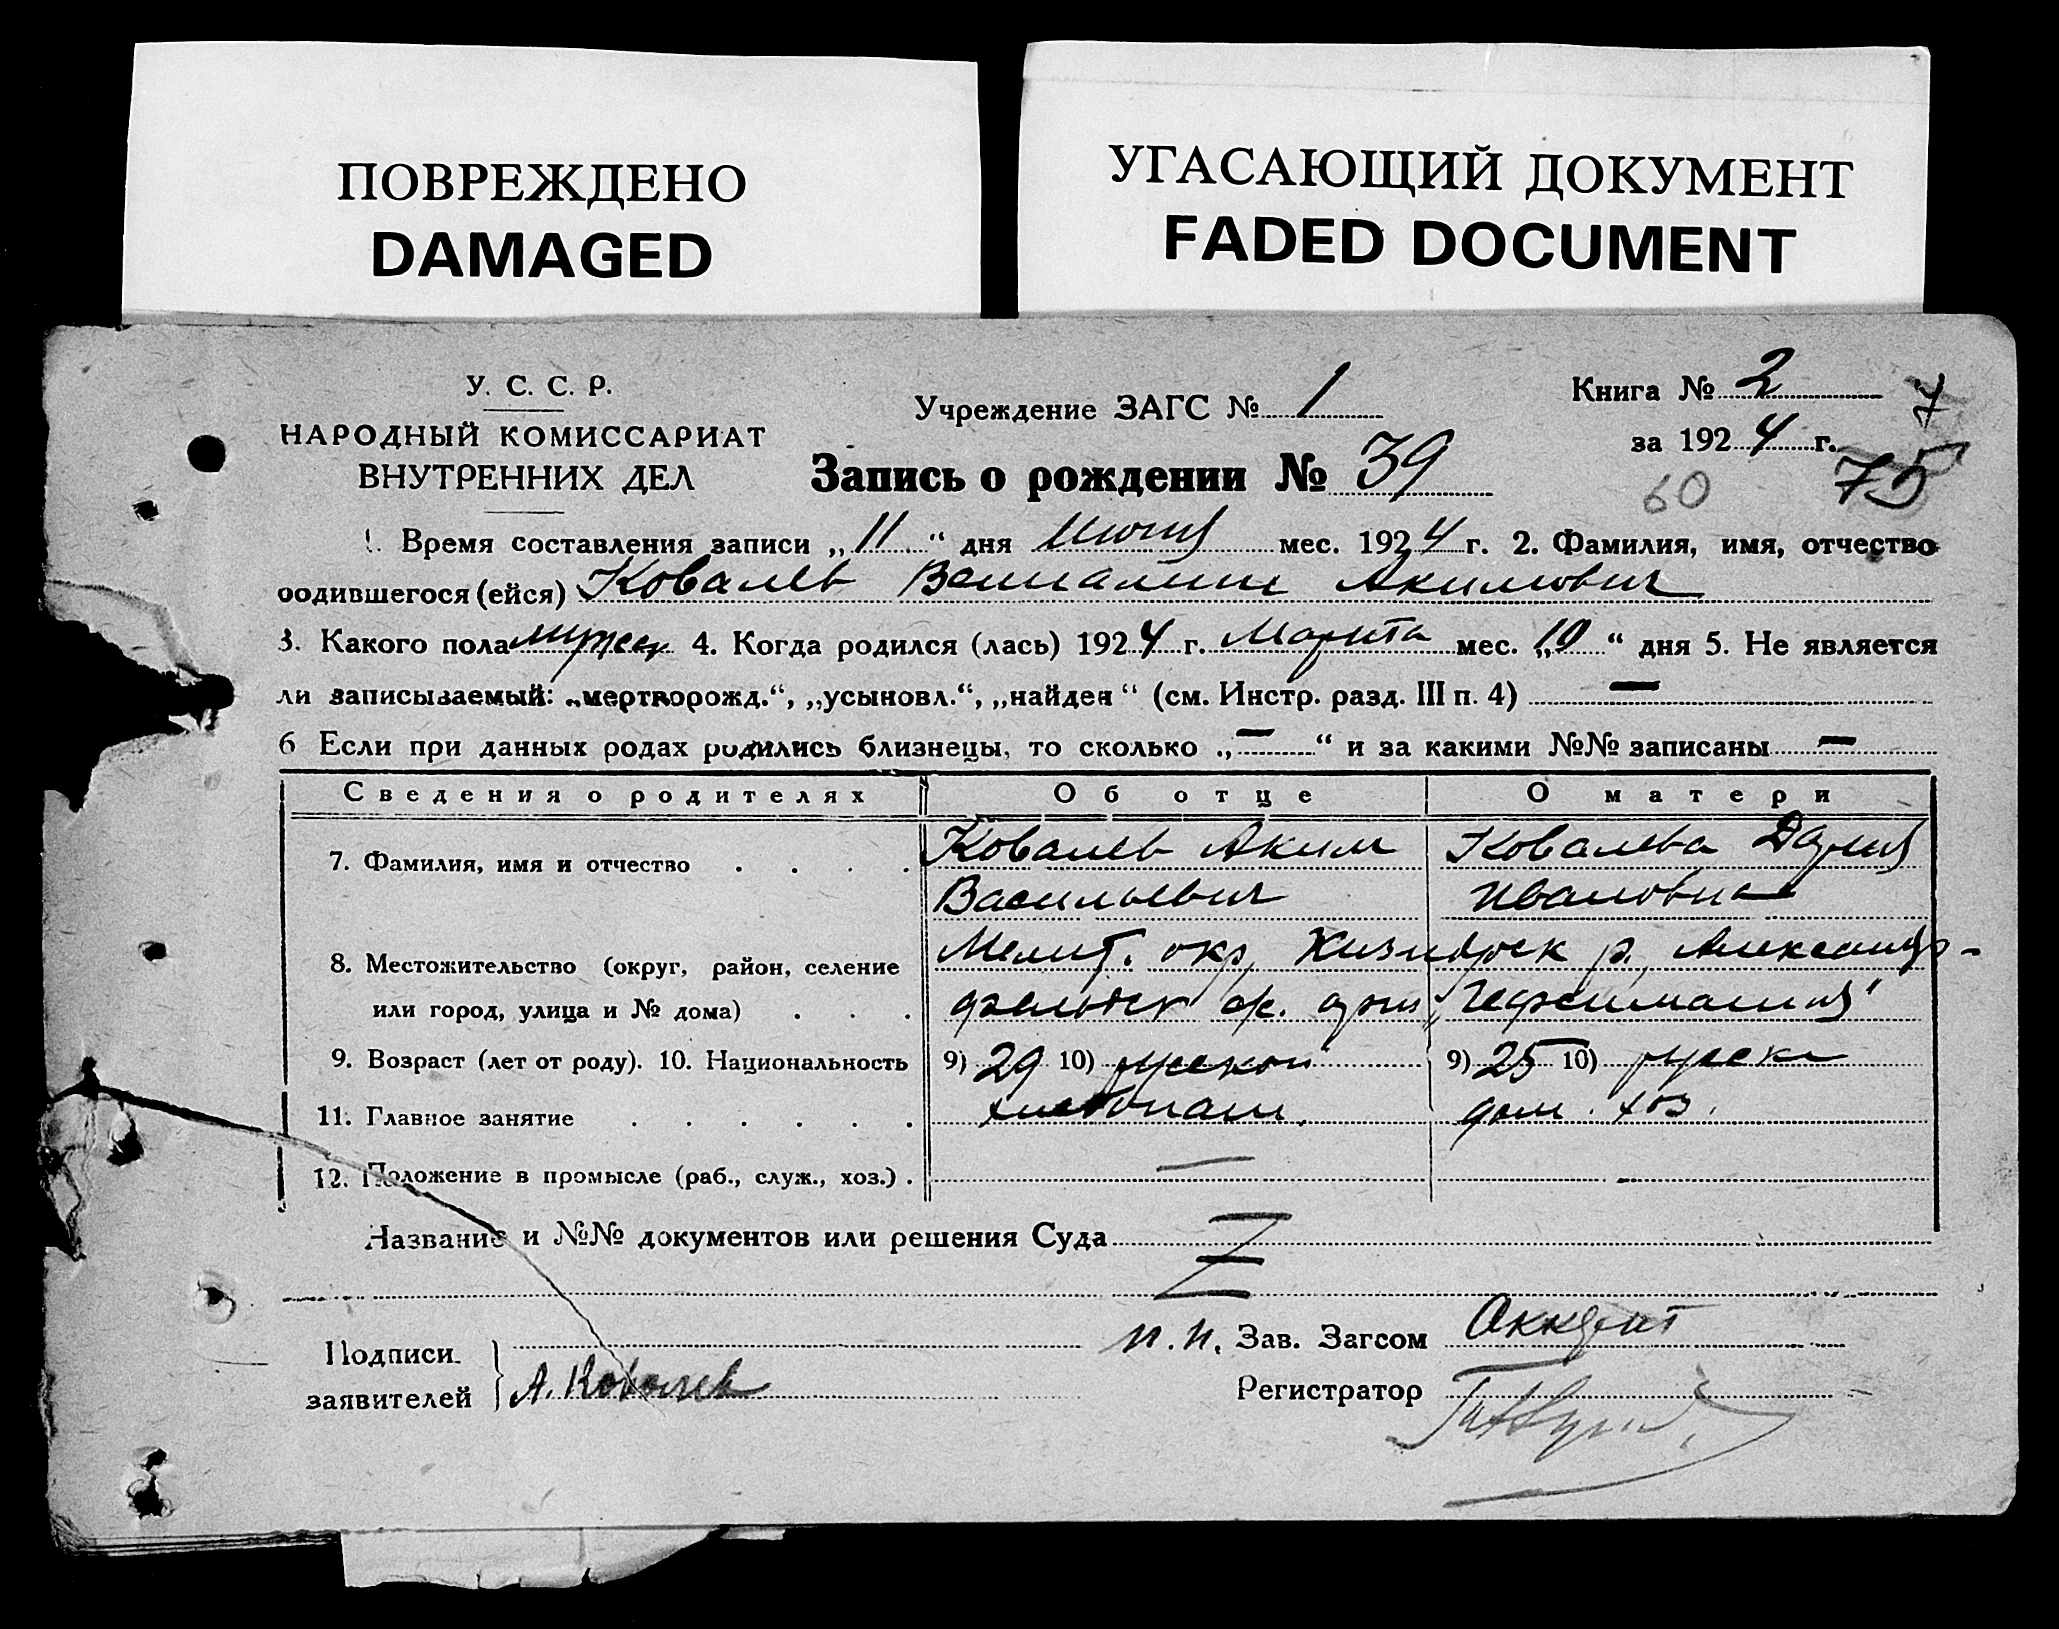 ПОВРЕЖДЕНО
DAMAGED
УГАСАЮЩИЙ ДОКУМЕНТ
FADED DOCUMENT
У. С. С. Р.
НАРОДНЫЙ КОМИССАРИАТ
ВНУТРЕННИХ ДЕЛ
Учреждение ЗАГС № 1
Книга № 2
7
за 1924 г.
Запись о рождении № 39
60 75
1. Время составления записи „11“ дня Июня мес. 1924 г. 2. Фамилия, имя, отчество
родившегося (ейся) Ковалев Вениамин Акимович
3. Какого пола мужск 4. Когда родился (лась) 1924 г. Марта мес. „10“ дня 5. Не является
ли записываемый: „мертворожд.“, „усыновл.“, „найден“ (см. Инстр. разд. III п. 4) —
6 Если при данных родах родились близнецы, то сколько „—“ и за какими №№ записаны —
Сведения о родителях Об отце О матери
7. Фамилия, имя и отчество . . . . Ковалев Аким Ковалева Дария
Васильевич Ивановна
8. Местожительство (округ, район, селение Мелит. окр, р. Александр-
или город, улица и № дома) . . . фельдск
9. Возраст (лет от роду). 10. Национальность 9) 29 10) русской 9) 25 10) русск
11. Главное занятие . . . . . . хлебопаш. дом. хоз.
12. Положение в промысле (раб., служ., хоз.) . — -
Название и №№ документов или решения Суда
Подписи
заявителей А. Ковалев
Зав. Загсом
Регистратор